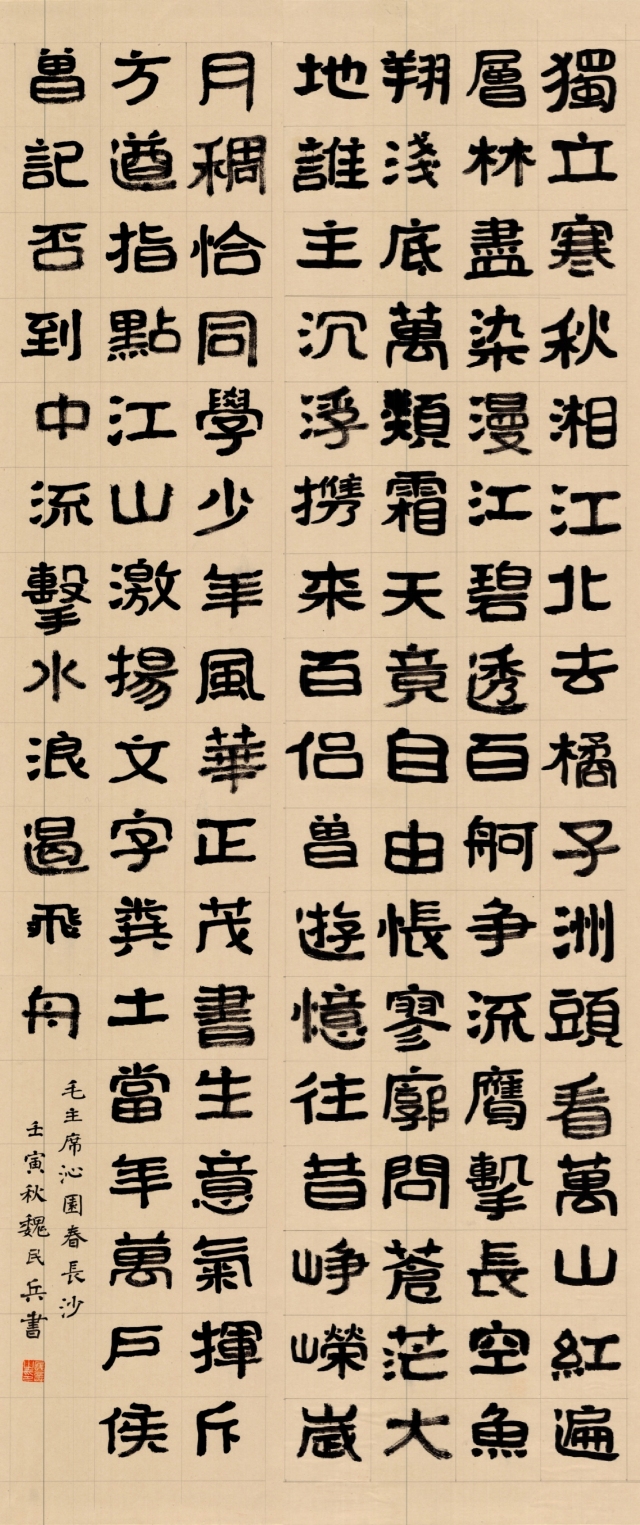 獨立寒秋湘江北去橘子洲頭看萬山紅遍
層林盡染漫江碧透百舸争流鷹擊長空魚
翔淺底萬類霜天竟自由悵寥廓問蒼茫大
地誰主沉浮携来百侣曾遊憶往昔崢嶸崴
月稠恰同學少年風華正茂書生意氣揮斥
方遒指點江山激揚文字糞土當年萬户侯
曾記否到中流擊水浪遏飛舟
毛主席沁園春長沙
壬寅秋魏民兵書